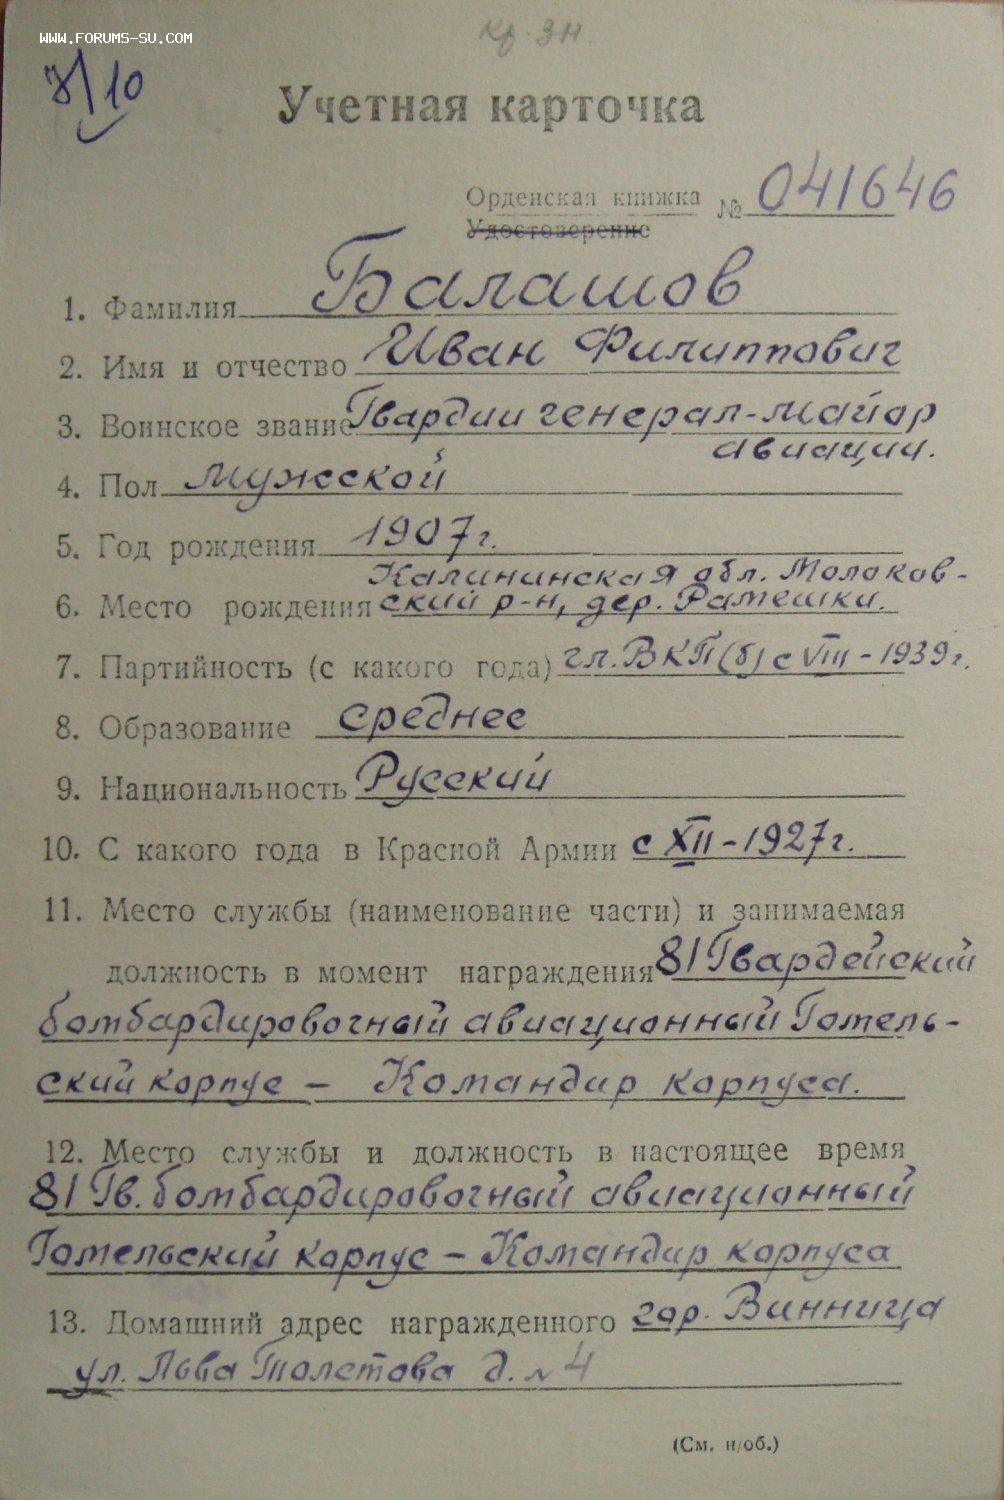 WWW.FORUMS-SU.COM
Кр. Зн.
7/10
Учетная карточка
Орденская книжка № 041646
Удостоверение
1. Фамилия Балашов
2. Имя и отчество Иван Филиппович
3. Воинское звание Гвардии генерал-майор
авиации.
4. Пол мужской
5. Год рождения 1907 г.
Калининская обл. Молоков-
6. Место рождения ский р-н, дер. Рамешки.
7. Партийность (с какого года) чл. ВКП(б) с VIII - 1939 г.
8. Образование среднее
9. Национальность Русский
10. С какого года в Красной Армии с XII - 1927 г.
11. Место службы (наименование части) и занимаемая
должность в момент награждения 81 Гвардейский
бомбардировочный авиационный Гомель-
ский корпус — Командир корпуса.
12. Место службы и должность в настоящее время
81 Гв. бомбардировочный авиационный
Гомельский корпус — Командир корпуса
13. Домашний адрес награжденного гор. Винница
ул. Льва Толстова д. № 4
(См. н/об.)